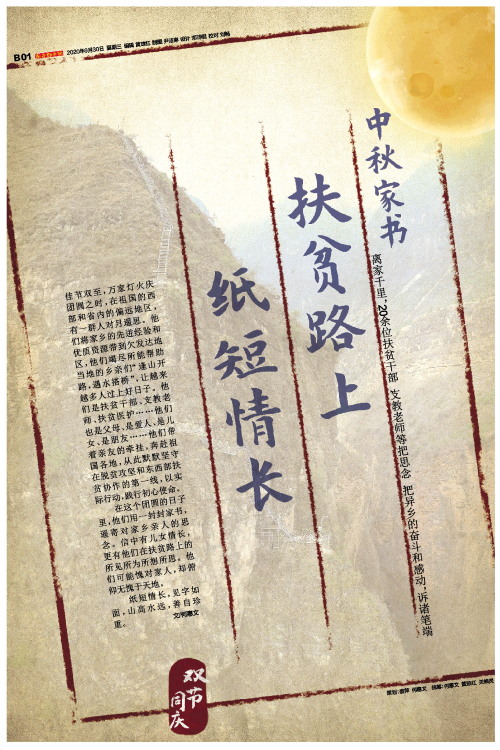 B01 2020年9月30日 星期三
中秋家书
扶贫路上
纸短情长
离家千里,20余位扶贫干部、支教老师等把思念、把异乡的奋斗和感动,诉诸笔端
佳节双至,万家灯火庆
团圆之时,在祖国的西
部和省内的偏远地区,
有一群人对月遥思。他
们将家乡的先进经验和
优质资源带到欠发达地
区,他们竭尽所能帮助
当地的乡亲们“逢山开
路,遇水搭桥”,让越来
越多人过上好日子。他
们是扶贫干部、支教老
师、扶贫医护……他们
也是父母、是爱人、是儿
女、是朋友……他们带
着亲友的牵挂,奔赴祖
国各地,从此默默坚守
在脱贫攻坚和东西部扶
贫协作的第一线,以实
际行动,践行初心使命。
在这个团圆的日子
里,他们用一封封家书,
遥寄对家乡亲人的思
念。信中有儿女情长,
更有他们在扶贫路上的
所见所为所想所思。他
们可能愧对家人,却俯
仰无愧于天地。
纸短情长,见字如
面,山高水远,善自珍
重。
文/何惠文
双节
同庆